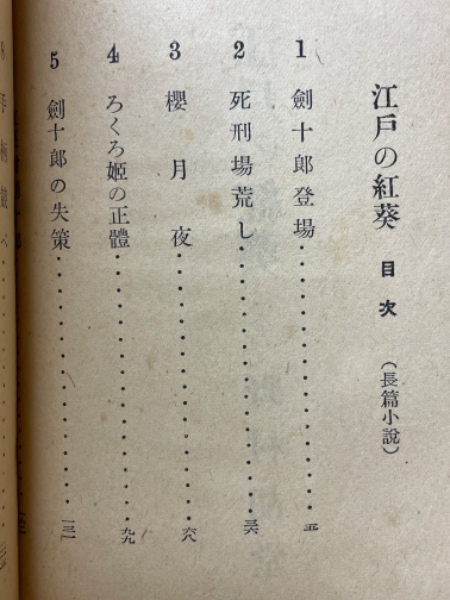 江戸の紅葵 目次 (長篇小說)
1 劍十郎登場 五
2 死刑場荒し 三六
3 櫻月夜 六八
4 ろくろ姬の正體 九九
5 劍十郎の失策 一三一